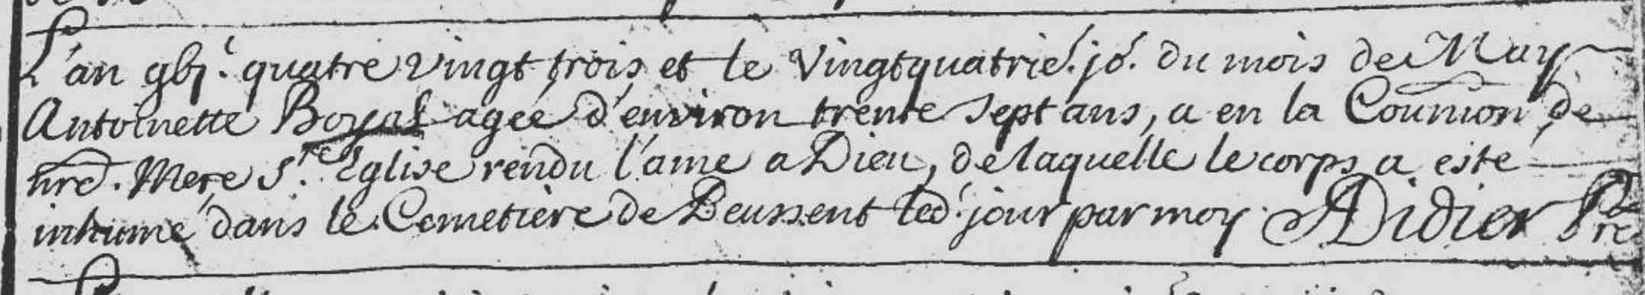 L'an gbj.^c quatre vingt trois et le vingtquatrie.^e jo.^r du mois de May
Antoinette Boyal agée d'environ trente sept ans, a en la Counion de
nre. Mere S.^te Eglise rendu l'ame a Dieu, de laquelle le corps a esté
inhumé dans le Cemetiere de Beussent led. jour par moy. Didier Pre